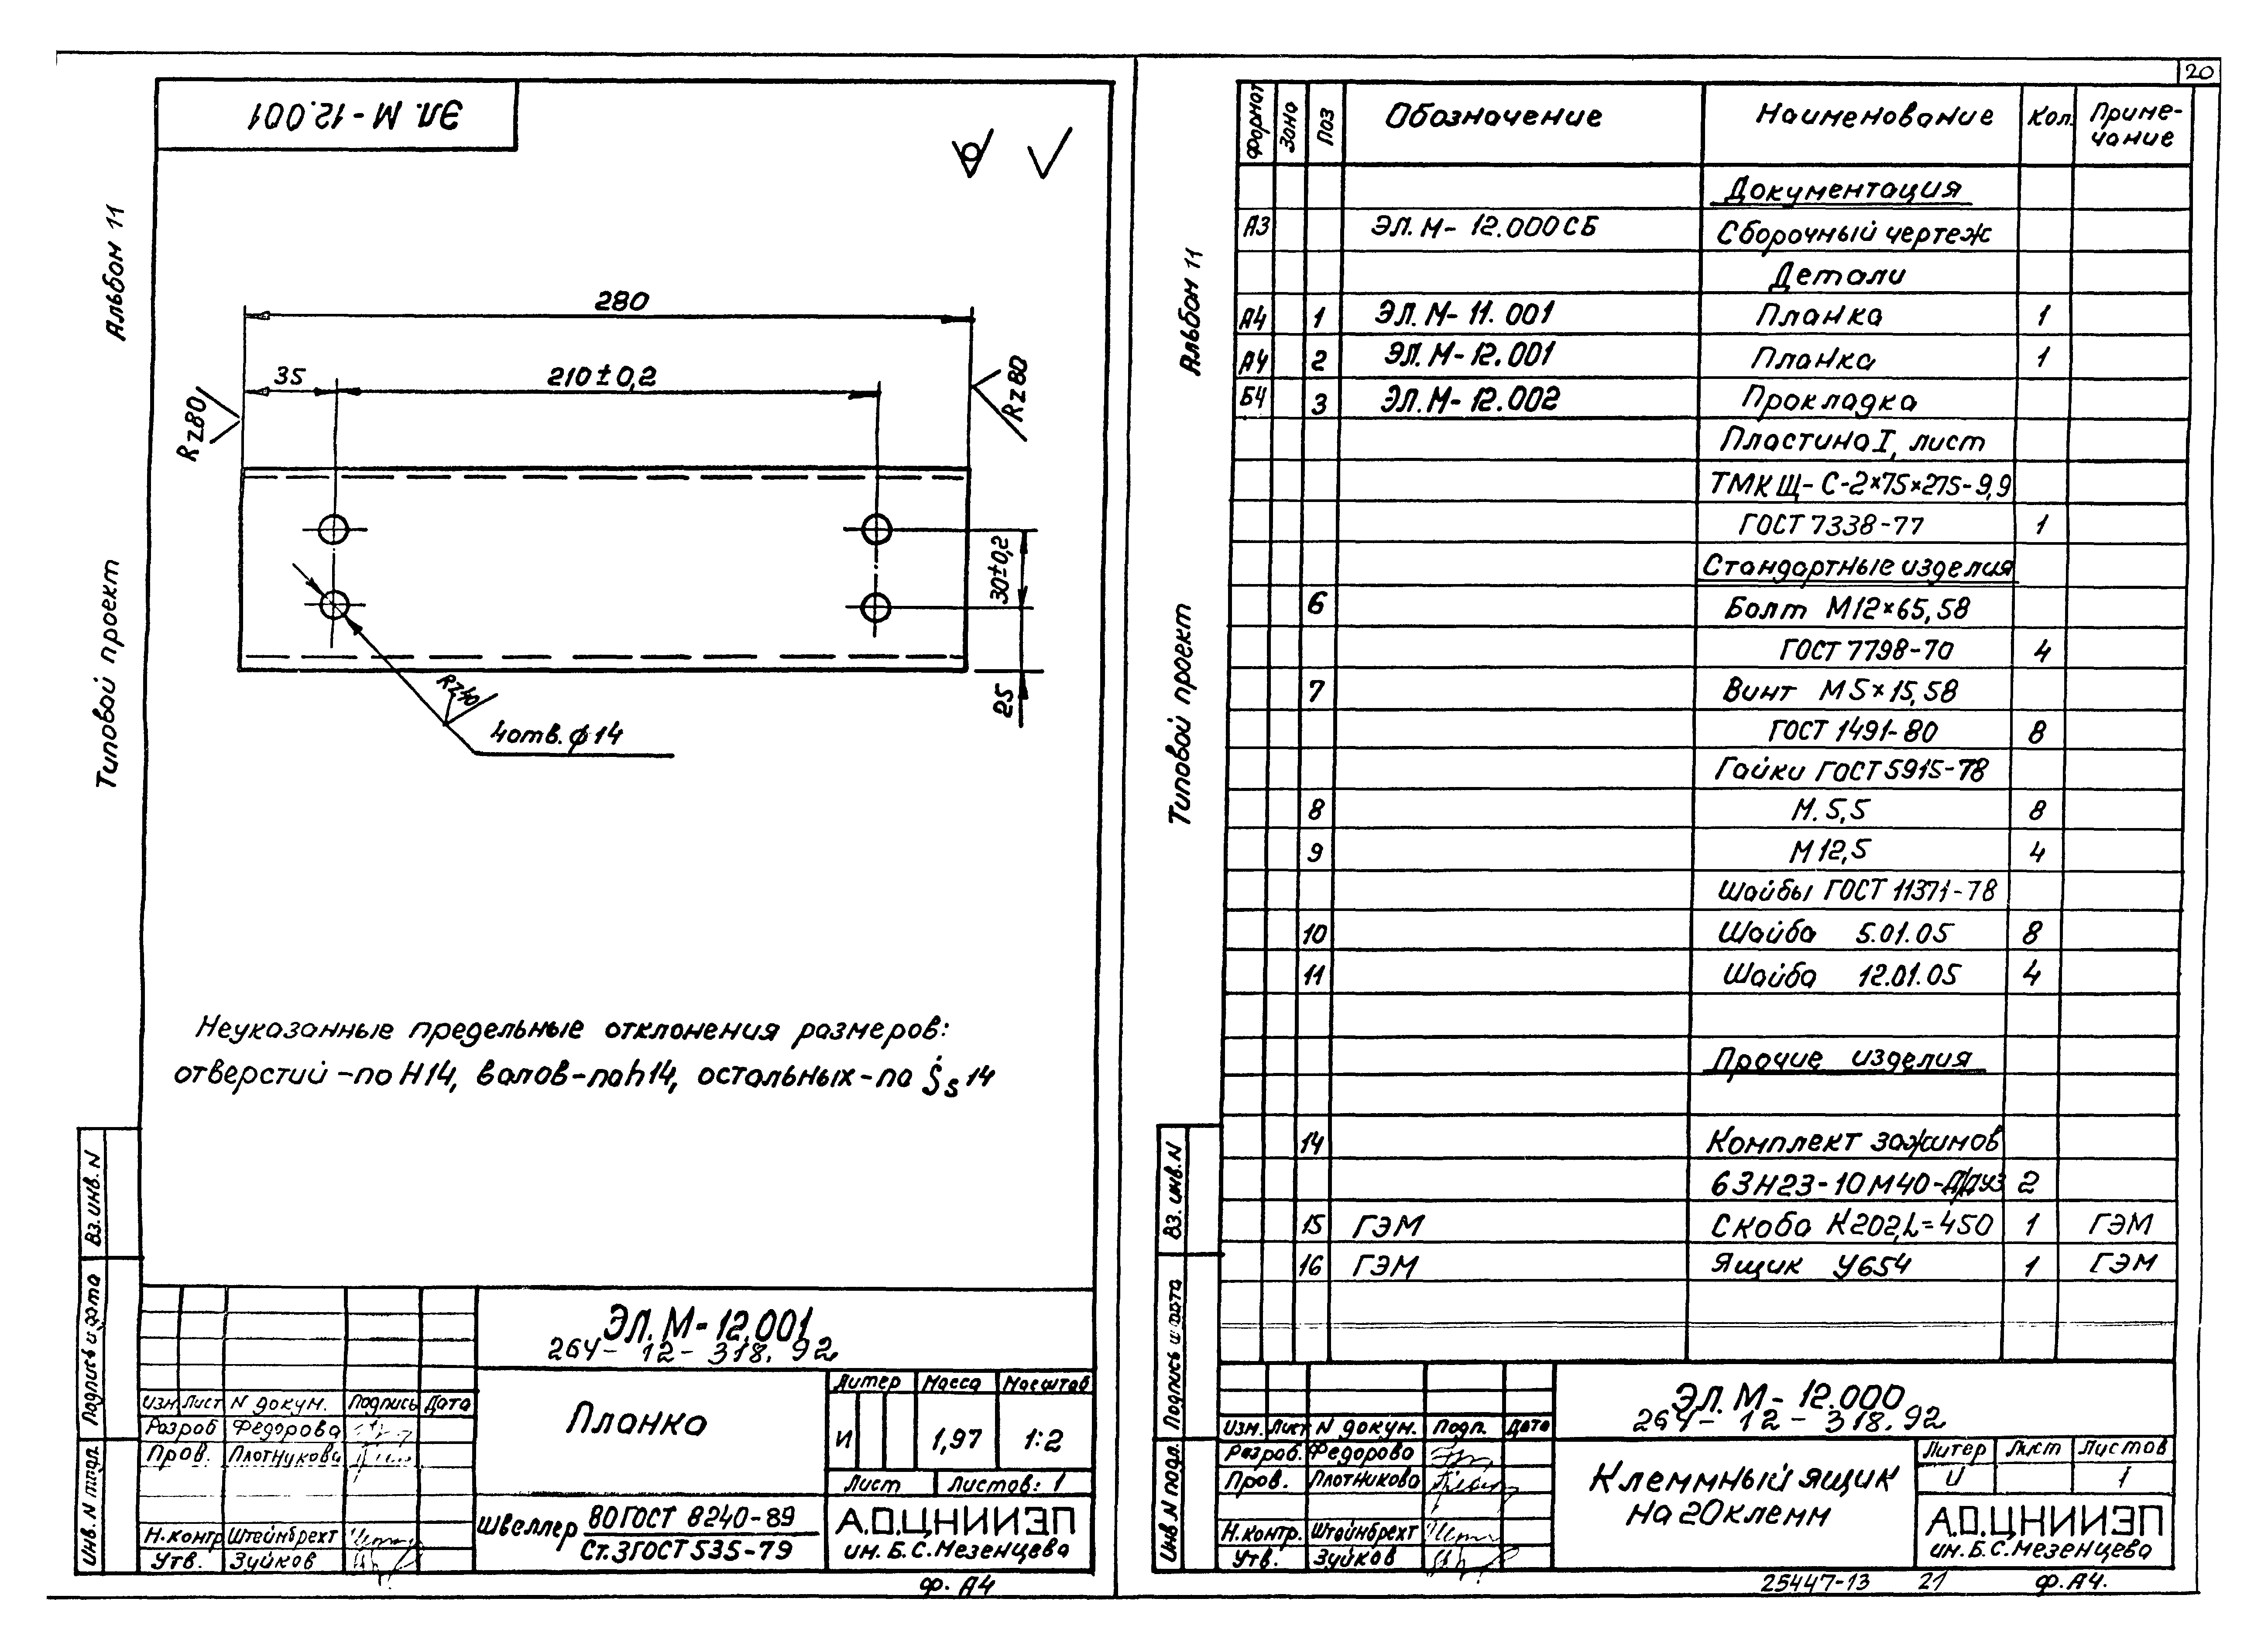 Эл. М-12.001
Альбом 11
Типовой проект
280
35
210±0,2
Rz80
Rz80
30±0,2
25
Rz40
4отв. ф14
Неуказанные предельные отклонения размеров:
отверстий-по H14, валов-по h14, остальных-по js14
Вз. инв. N
Подпись и дата
Инв. N подл.
ЭЛ. М-12.001
264-12-318.92
Изм Лист N докум. Подпись Дата
Разроб Федорова
Пров. Плотникова
Н.контр Штейнбрехт
Утв. Зуйков
Планка
Литер Масса Масштаб
И 1,97 1:2
Лист Листов: 1
швеллер 80 ГОСТ 8240-89
Ст.3 ГОСТ 535-79
А.О.ЦНИИЭП
им. Б.С.Мезенцева
ф. А4
20
Альбом 11
Типовой проект
Формат Зона Поз Обозначение Наименование Кол. Приме-
чание
Документация
А3 ЭЛ. М-12.000СБ Сборочный чертеж
Детали
А4 1 ЭЛ. М-11.001 Планка 1
А4 2 ЭЛ. М-12.001 Планка 1
Б4 3 ЭЛ. М-12.002 Прокладка
Пластина I, лист
ТМКЩ-С-2×75×275-9,9
ГОСТ 7338-77 1
Стандартные изделия
6 Болт М12×65,58
ГОСТ 7798-70 4
7 Винт М5×15,58
ГОСТ 1491-80 8
Гайки ГОСТ 5915-78
8 М.5,5 8
9 М12,5 4
Шайбы ГОСТ 11371-78
10 Шайба 5.01.05 8
11 Шайба 12.01.05 4
Прочие изделия
14 Комплект зажимов
63Н23-10М40- 2
15 ГЭМ Скоба К202, L=450 1 ГЭМ
16 ГЭМ Ящик У654 1 ГЭМ
Вз. инв. N
Подпись и дата
Инв N подл.
ЭЛ. М-12.000
264-12-318.92
Изм. Лист N докум. Подп. Дата
Разраб. Федорова
Пров. Плотникова
Н.контр. Штейнбрехт
Утв. Зуйков
Клеммный ящик
на 20 клемм
Литер Лист Листов
И 1
А.О.ЦНИИЭП
им. Б.С.Мезенцева
25447-13 21 ф.А4.